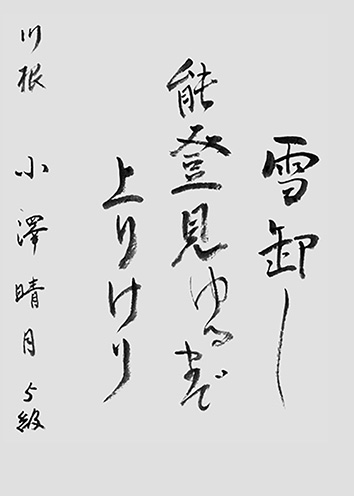 雪卸し
能登見ゆるまで
上りけり
川根 小澤晴月 5級